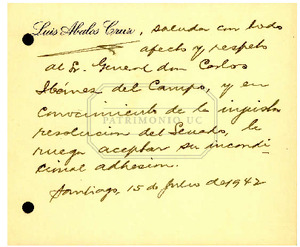 Luis Abalos Cruz, saluda con todo
afecto y respeto
al Sr. General don Carlos
Ibáñez del Campo, y en
conocimiento de la injusta
resolucion del Senado, le
ruega aceptar su incondi
cional adhesion.
Santiago, 15 de Julio de 1942
PATRIMONIO UC